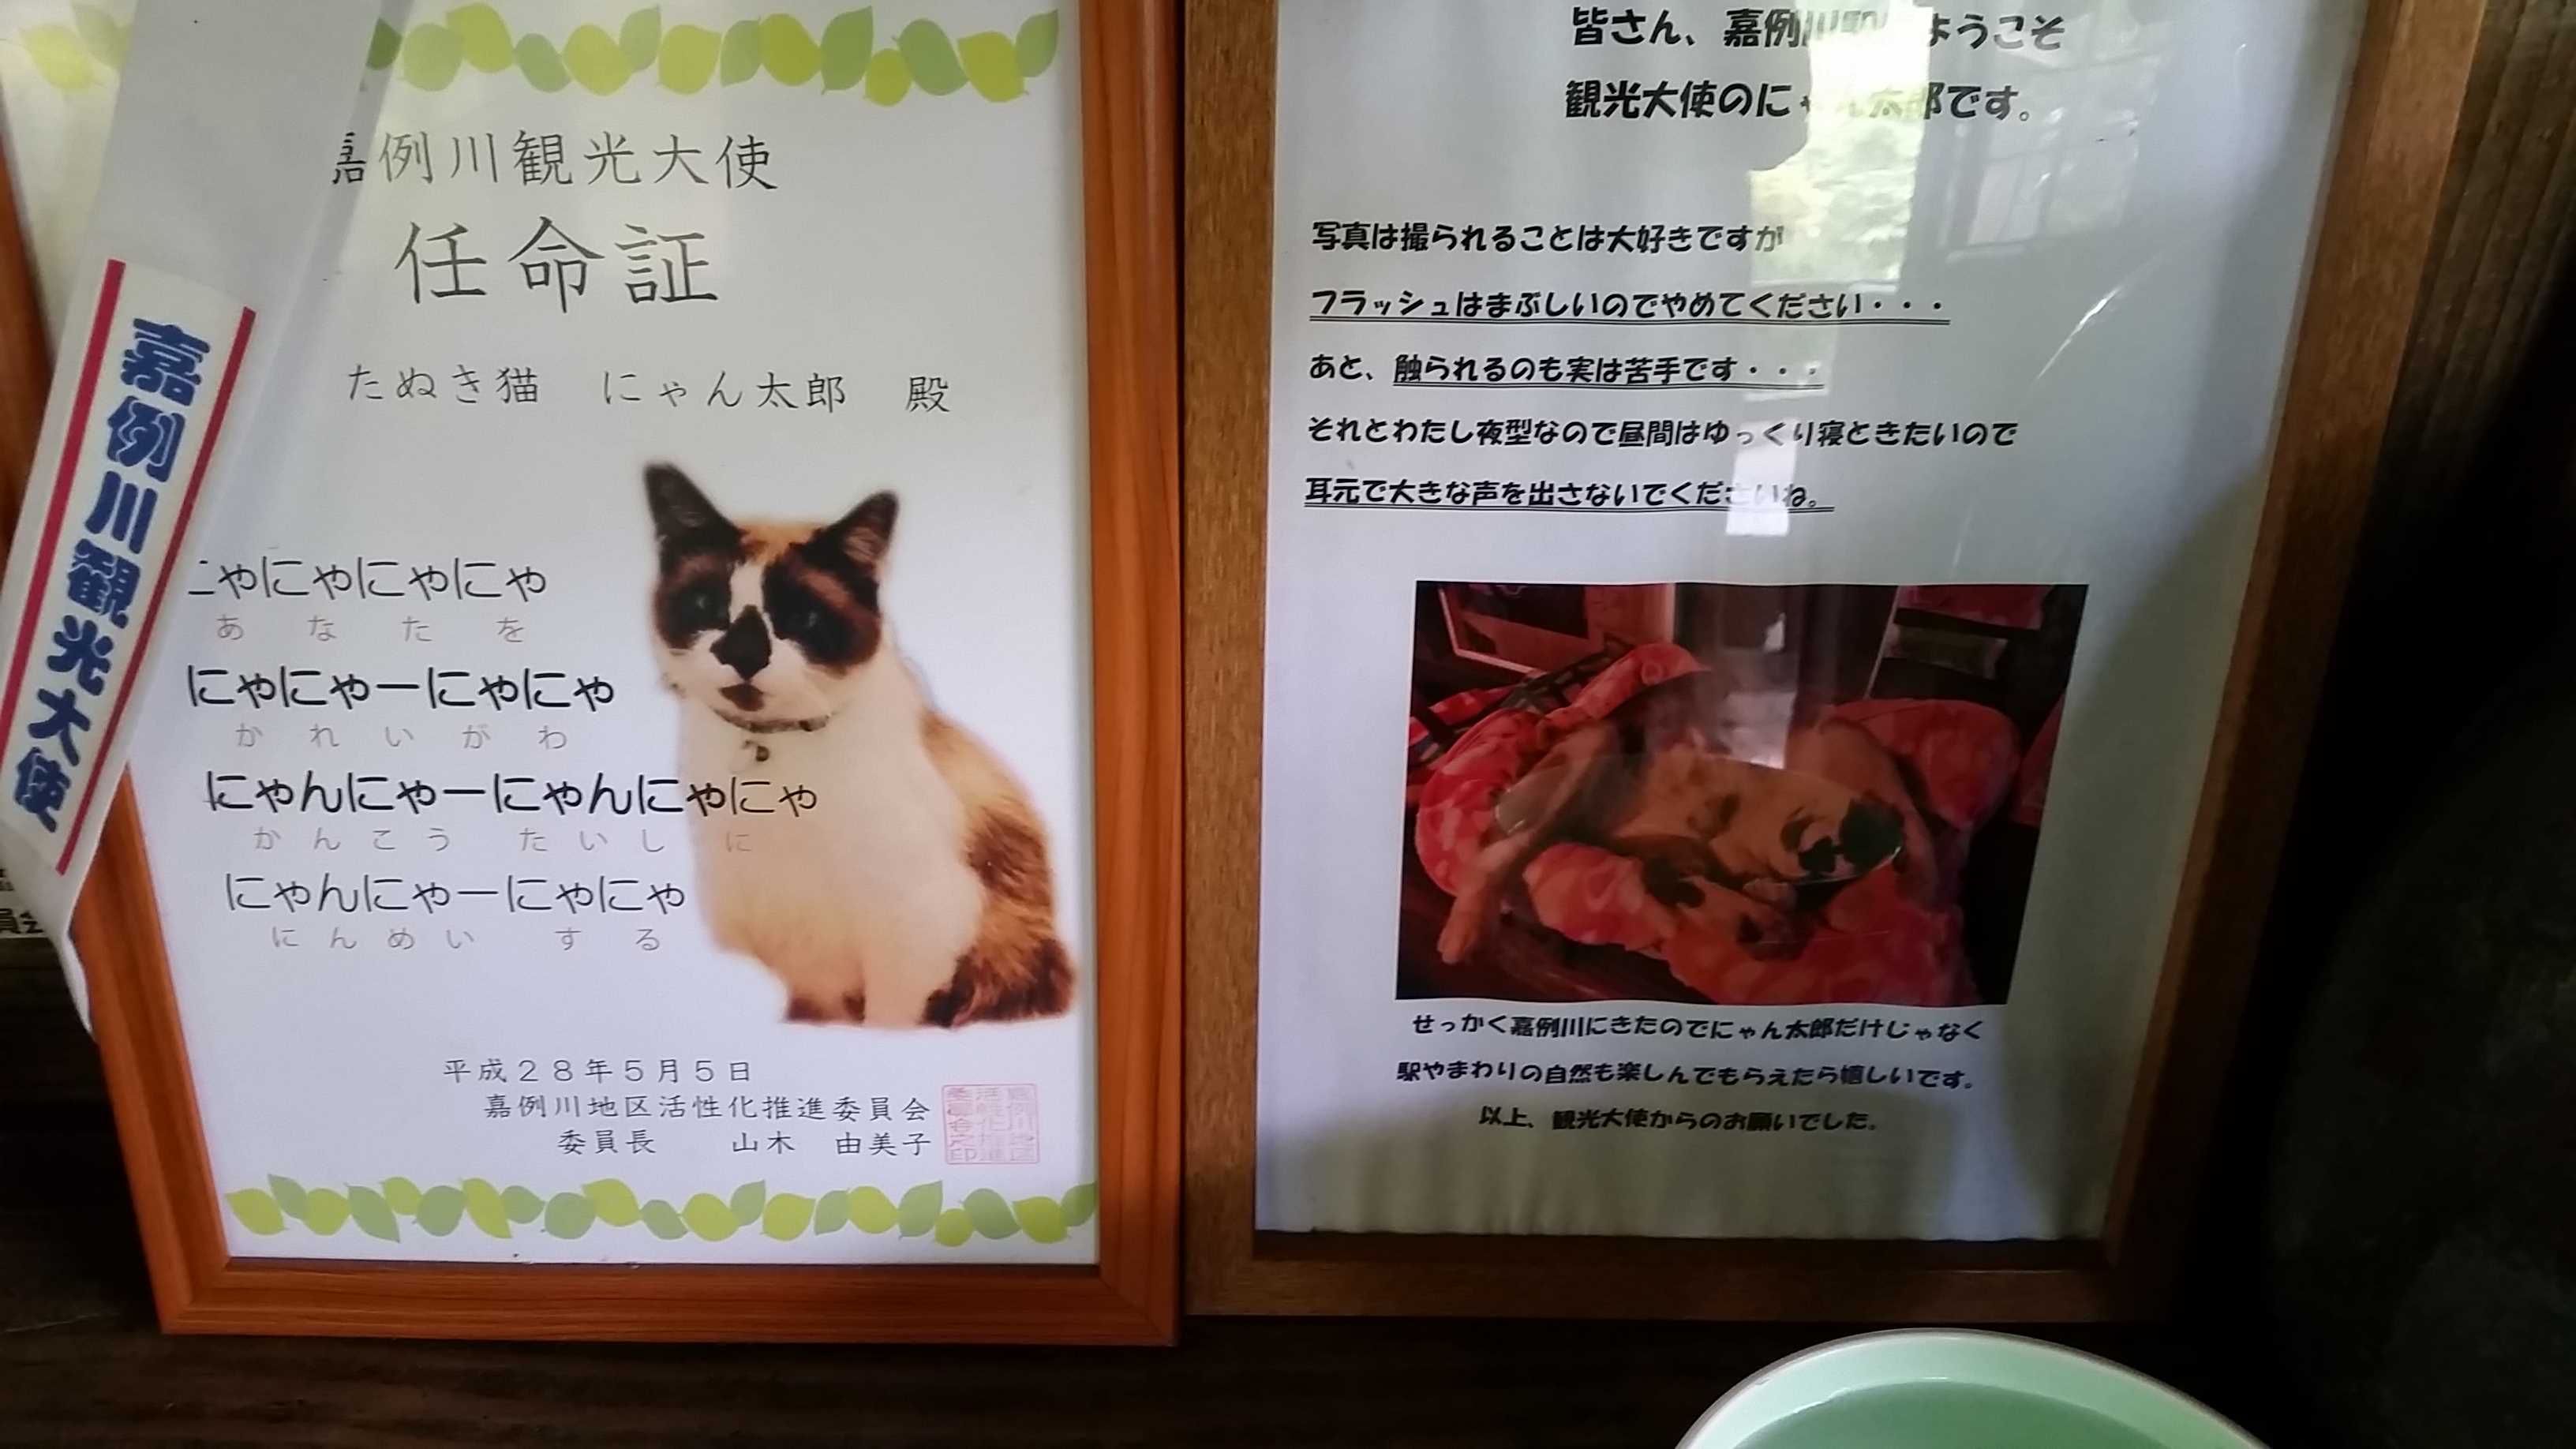 嘉例川観光大使
嘉例川観光大使
任命証
たぬき猫　にゃん太郎　殿
にゃにゃにゃにゃ
あなたを
にゃにゃーにゃにゃ
かれいがわ
にゃんにゃーにゃんにゃにゃ
かんこう　たいし　に
にゃんにゃーにゃにゃ
にんめい　する
平成２８年５月５日
嘉例川地区活性化推進委員会
委員長　山木　由美子
皆さん、嘉例川駅 ようこそ
観光大使のにゃん太郎です。
写真は撮られることは大好きですが
フラッシュはまぶしいのでやめてください・・・
あと、触られるのも実は苦手です・・・
それとわたし夜型なので昼間はゆっくり寝ときたいので
耳元で大きな声を出さないでくださいね。
せっかく嘉例川にきたのでにゃん太郎だけじゃなく
駅やまわりの自然も楽しんでもらえたら嬉しいです。
以上、観光大使からのお願いでした。